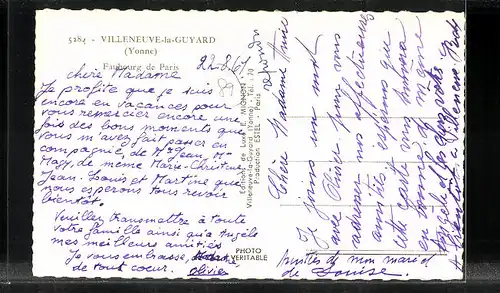 5284 - VILLENEUVE-la-GUYARD
(Yonne)
Faubourg de Paris
22-8-61
chère Madame
Je profite que je suis
encore en vacances pour
vous remercier encore une
fois des bons moments que
vous m'avez fait passer en
compagnie, de
de même Marie-Christine
Jean-Louis et Martine que
nous espérons tous revoir
bientôt.
Veuillez transmettre à toute
votre famille ainsi qu'à Angèle
mes meilleures amitiés
Je vous embrasse,
de tout coeur. Olivier
Villeneuve-la-Guyard (Yonne) - Tél. : 70
Production ESTEL - Paris
PHOTO
VERITABLE
répondu
Chère Madame
Je joins un mot
avec Olivier pour vous
adresser nos affectueuses
amitiés espérons que
cette carte vous trouvera
en bonne
à Villeneuve
Amitiés de mon mari et
de Louise.